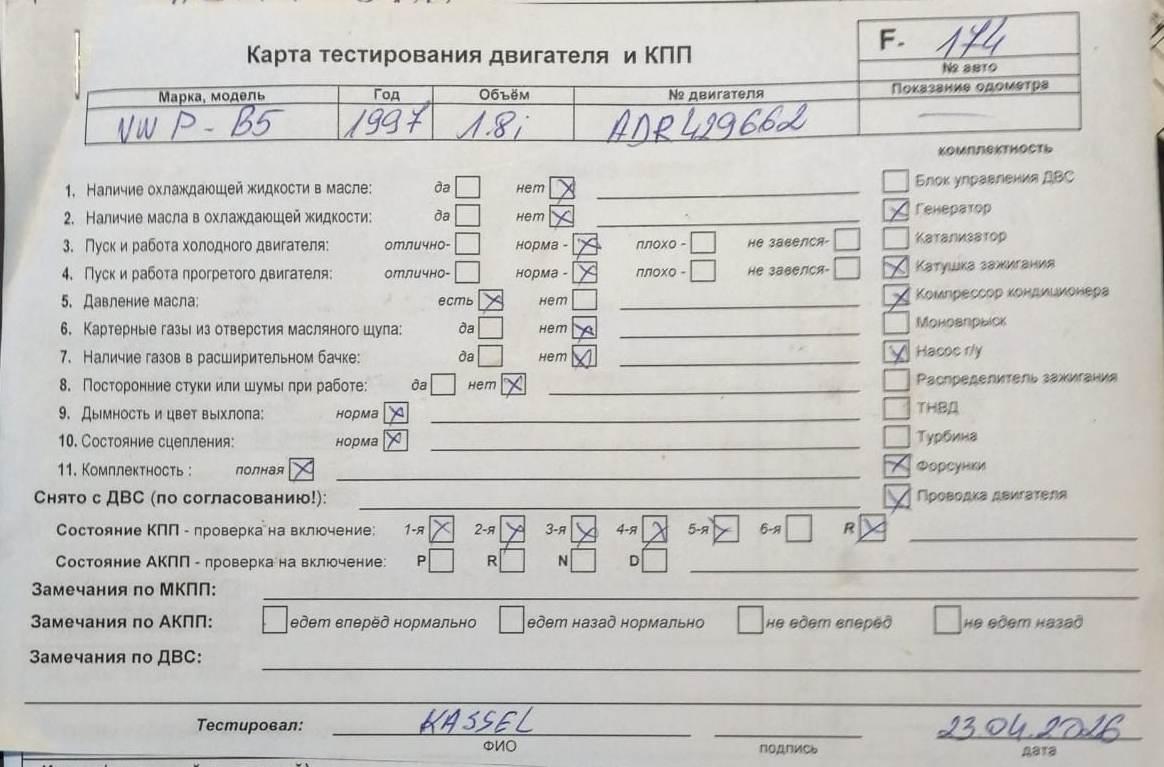 Карта тестирования двигателя и КПП
F- 174
№ авто
Марка, модель Год Объём № двигателя Показание одометра
VW P - B5 1997 1.8i ADR429662 —
комплектность
1. Наличие охлаждающей жидкости в масле: да нет Блок управления ДВС
2. Наличие масла в охлаждающей жидкости: да нет Генератор
3. Пуск и работа холодного двигателя: отлично- норма - плохо - не завелся- Катализатор
4. Пуск и работа прогретого двигателя: отлично- норма - плохо - не завелся- Катушка зажигания
5. Давление масла: есть нет Компрессор кондиционера
6. Картерные газы из отверстия масляного щупа: да нет Моновпрыск
7. Наличие газов в расширительном бачке: да нет Насос г/у
8. Посторонние стуки или шумы при работе: да нет Распределитель зажигания
9. Дымность и цвет выхлопа: норма ТНВД
10. Состояние сцепления: норма Турбина
11. Комплектность : полная Форсунки
Снято с ДВС (по согласованию!): Проводка двигателя
Состояние КПП - проверка на включение: 1-я 2-я 3-я 4-я 5-я 6-я R
Состояние АКПП - проверка на включение: P R N D
Замечания по МКПП:
Замечания по АКПП: едет вперёд нормально едет назад нормально не едет вперёд не едет назад
Замечания по ДВС:
Тестировал: KASSEL 23.04.2026
ФИО подпись дата